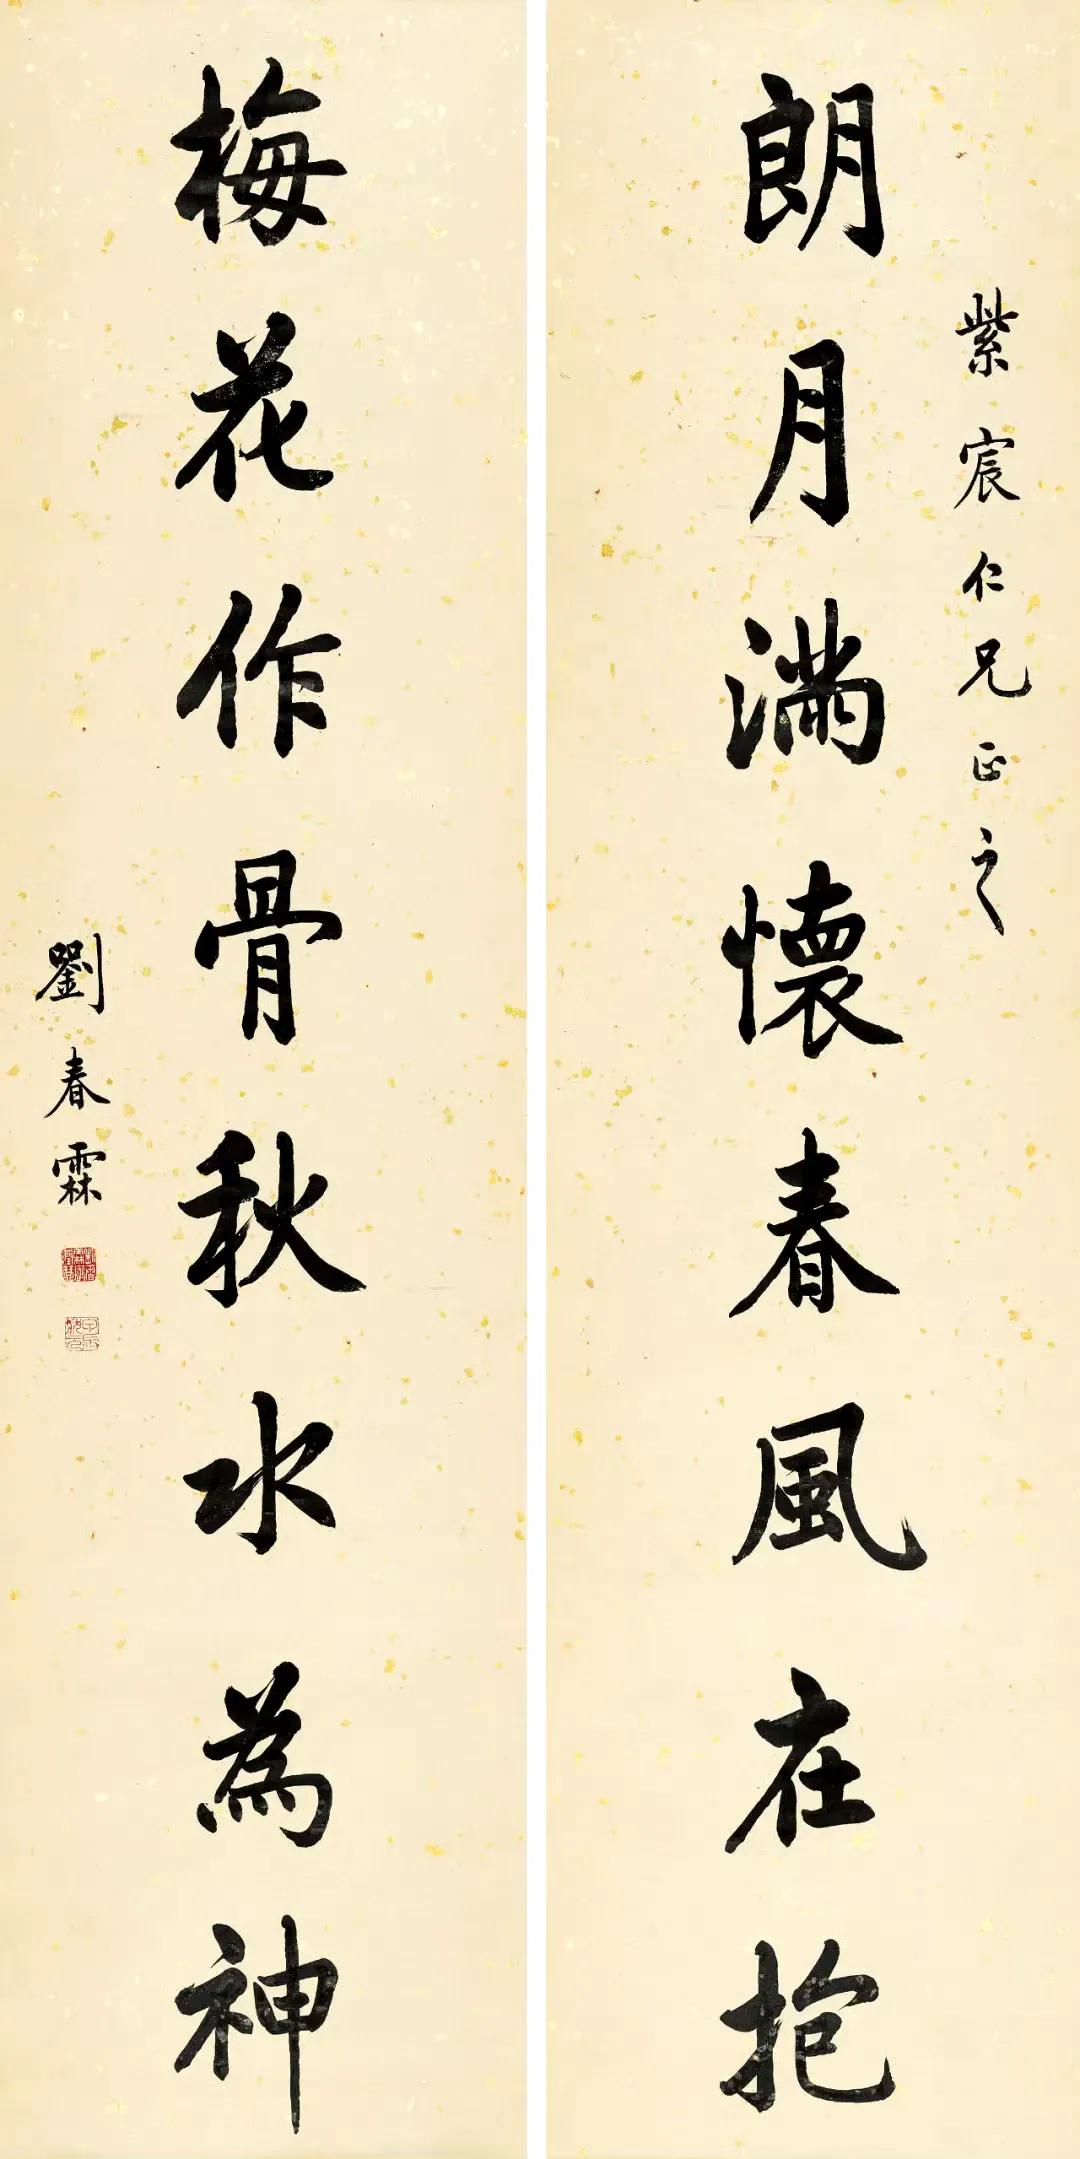 紫宸仁兄正之
朗月滿懷春風在抱
梅花作骨秋水為神
劉春霖